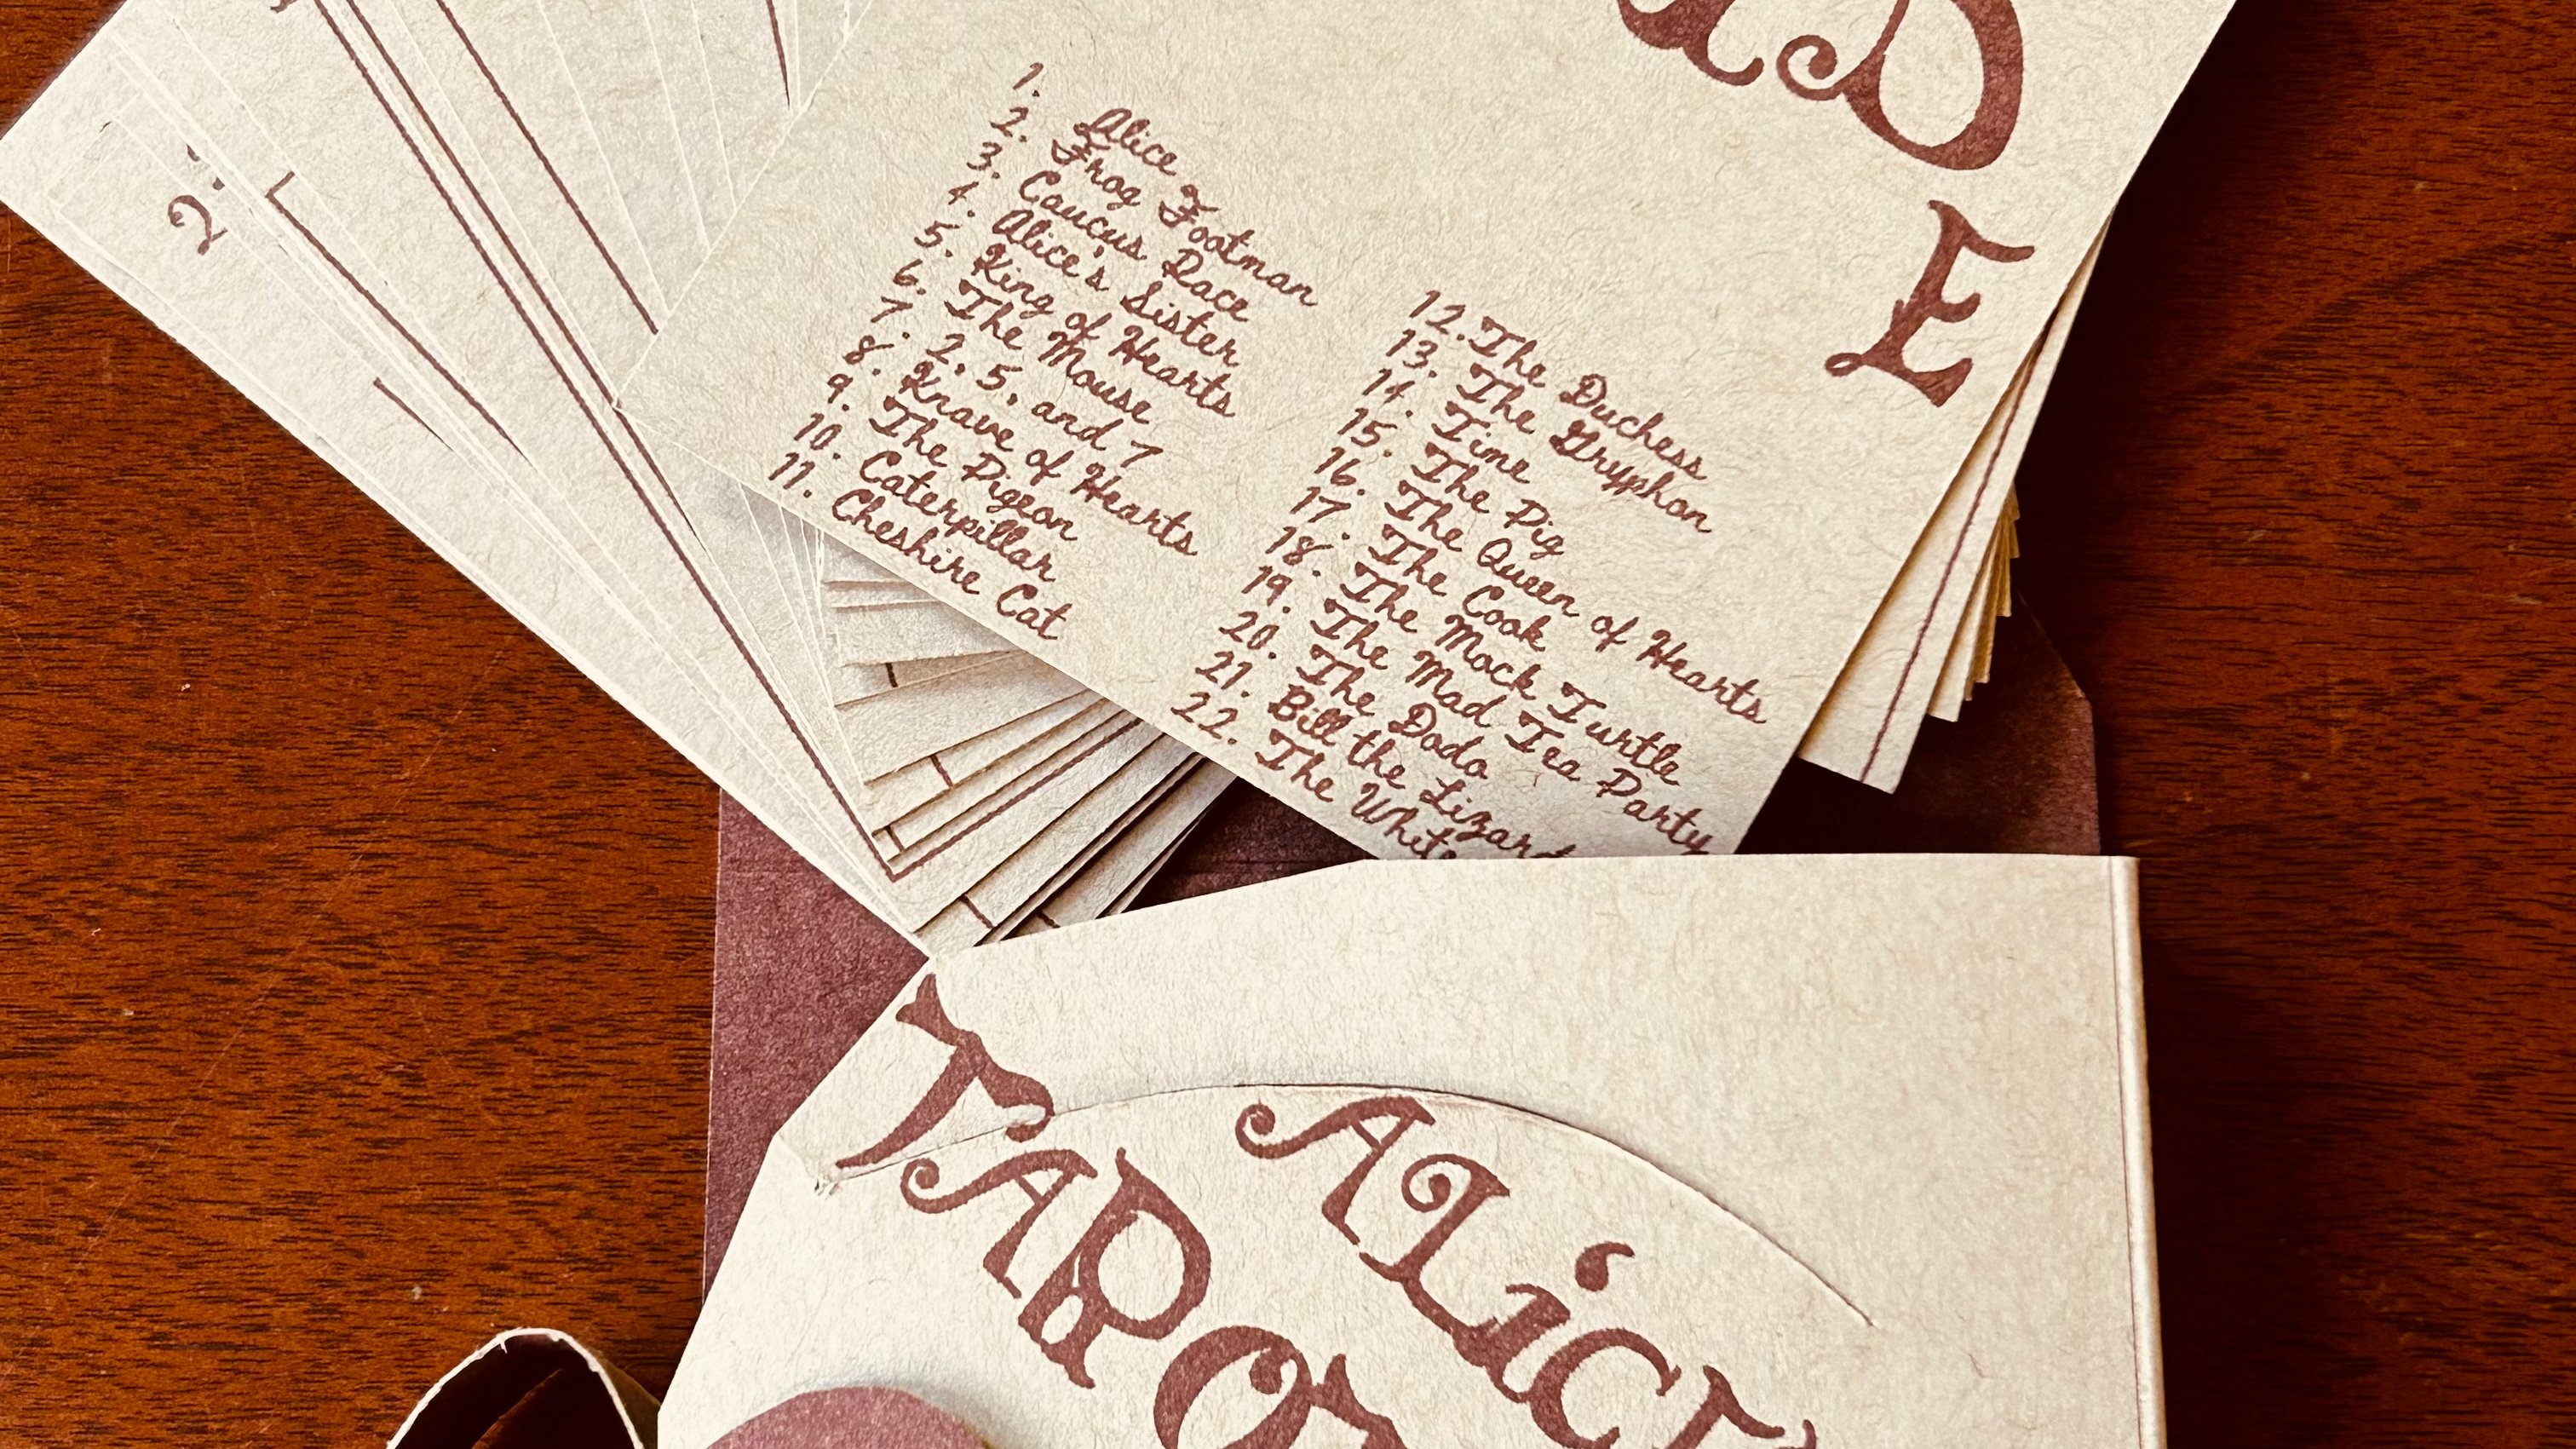 D
E
1. Alice
2. Frog Footman
3. Caucus Race
4. Alice's Sister
5. King of Hearts
6. The Mouse
7. 2, 5, and 7
8. Knave of Hearts
9. The Pigeon
10. Caterpillar
11. Cheshire Cat
12. The Duchess
13. The Gryphon
14. Time
15. The Pig
16. The Queen of Hearts
17. The Cook
18. The Mock Turtle
19. The Mad Tea Party
20. The Dodo
21. Bill the Lizard
22. The White
2.
ALiC
TARO